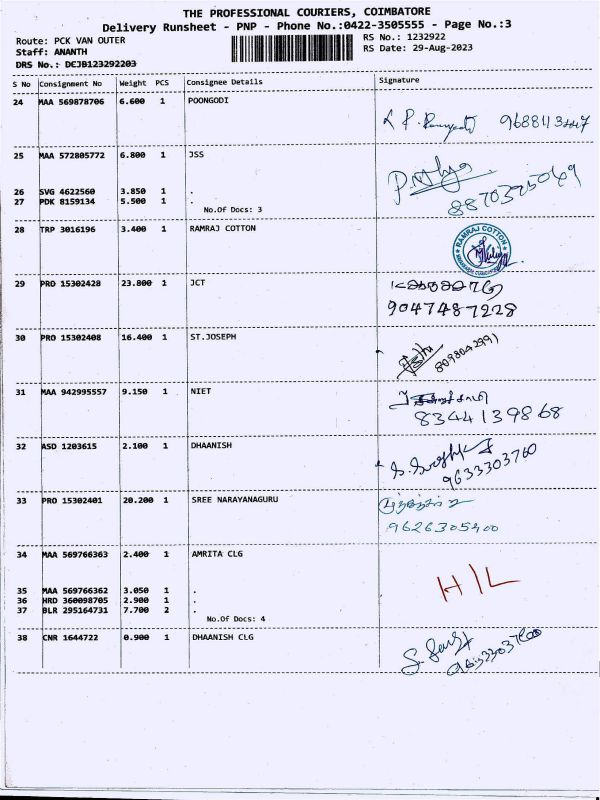 THE PROFESSIONAL COURIERS, COIMBATORE
Delivery Runsheet - PNP - Phone No.:0422-3505555 - Page No.:3
Route: PCK VAN OUTER RS No.: 1232922
Staff: ANANTH RS Date: 29-Aug-2023
DRS No.: DEJB123292203
S No Consignment No Weight PCS Consignee Details Signature
24 MAA 569878706 6.600 1 POONGODI
25 MAA 572805772 6.800 1 JSS
8870375069
26 SVG 4622560 3.850 1 .
27 PDK 8159134 5.500 1 .
No.Of Docs: 3
28 TRP 3016196 3.400 1 RAMRAJ COTTON RAMRAJ COTTON
29 PRO 15302428 23.800 1 JCT
9047487228
30 PRO 15302408 16.400 1 ST.JOSEPH
31 MAA 942995557 9.150 1 NIET
8344139868
32 ASD 1203615 2.100 1 DHAANISH
9633303760
33 PRO 15302401 20.200 1 SREE NARAYANAGURU
9626305400
34 MAA 569766363 2.400 1 AMRITA CLG
H/L
35 MAA 569766362 3.050 1 .
36 HRD 360098705 2.900 1 .
37 BLR 295164731 7.700 2 .
No.Of Docs: 4
38 CNR 1644722 0.900 1 DHAANISH CLG